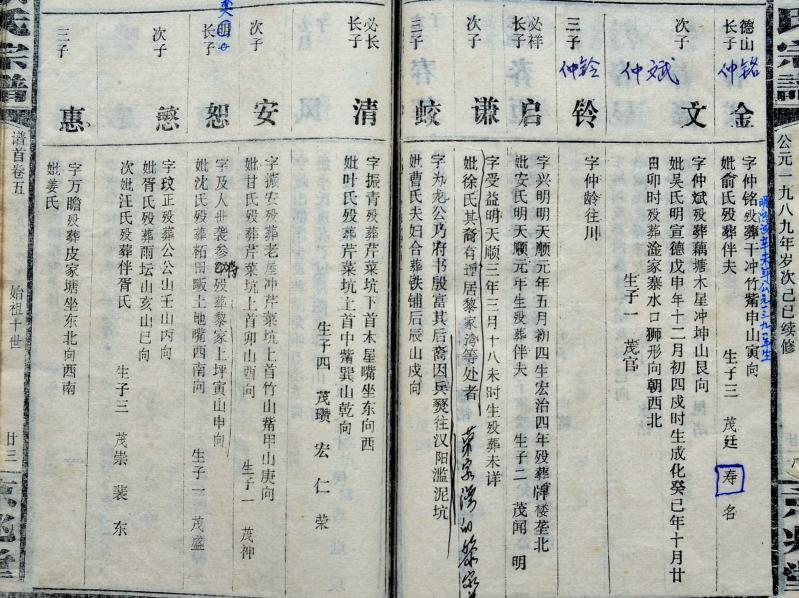 氏宗谱
公元一九八九年岁次己巳续修
德山
长子
仲铭
金
字仲铭殁葬干冲竹觜申山寅向
妣俞氏殁葬伴夫
生子三 茂廷 寿 名
次子
仲斌
文
字仲斌殁葬藕塘木星冲坤山艮向
妣吴氏明宣德戊申年十二月初四戌时生成化癸巳年十月廿
田卯时殁葬淦家寨水口狮形向朝西北
生子一 茂官
三子
仲铃
铃
字仲龄往川
必祥
长子
启
字兴明明天顺元年五月初四生宏治四年殁葬牌楼垄北
妣安氏明天顺元年生殁葬伴夫
生子二 茂闻 明
次子
谦
字受益明天顺三年三月十八未时生殁葬未详
妣徐氏其裔有迁居黎家湾等处者
三子
皎
字为龙公乃府书殷富其后裔因兵燹往汉阳滥泥坑
妣曹氏夫妇合葬铁铺后辰山戍向
必长
长子
清
字振青殁葬芹菜坑下首木星嘴坐东向西
妣叶氏殁葬芹菜坑上首中觜巽山乾向
生子四 茂瓒 宏 仁 荣
次子
安
字振安殁葬老屋冲芹菜坑上首竹山觜甲山庚向
妣甘氏殁葬芹菜坑上首卯山酉向
生子一 茂神
长子
恕
字及人世袭参将殁葬黎家上坪寅山申向
妣沈氏殁葬柘田畈土地嘴西南向
生子一 茂盛
次子
慈
字玟正殁葬公公山壬山丙向
妣胥氏殁葬雨坛山亥山巳向
次妣汪氏殁葬伴胥氏
生子三 茂崇 裴 东
三子
惠
字万瞻殁葬皮家塘坐东北向西南
妣姜氏
宗谱
谱首卷五
始祖十世
廿三